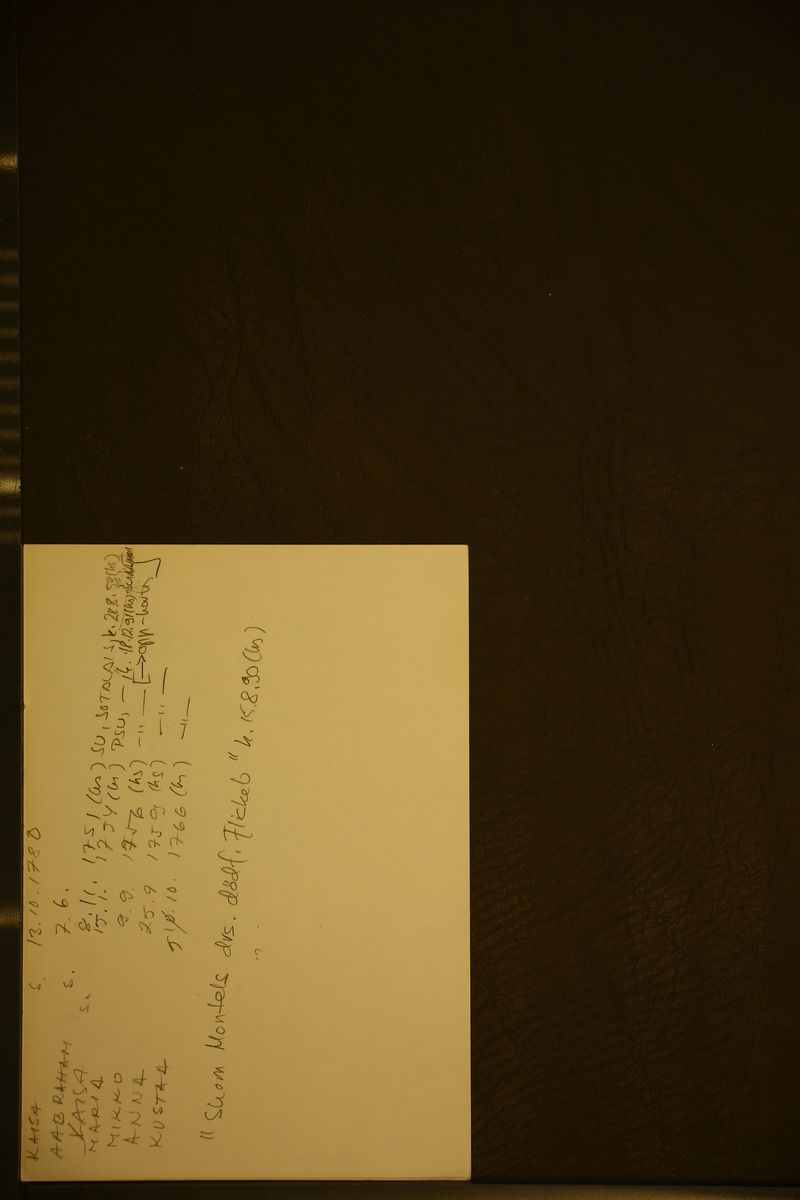 KAISA s. 13.10.1780
AABRAHAM s. 7.6.
KAISA s. 8.11. 1751 (hs) SU, SOTALAIS, k. 28.8.53 (hs)
MARIA 15.1. 1754 (hs) PSU,
MIKKO 9.9. 1756 (hs) —"— [→ opp.-kortti]
ANNA 25.9 1759 (hs) —"—
KUSTAA 10. 1766 (hs) —"—
"Skom Montels drs. dödf. Flickeb" k. 15.8.90 (hs)